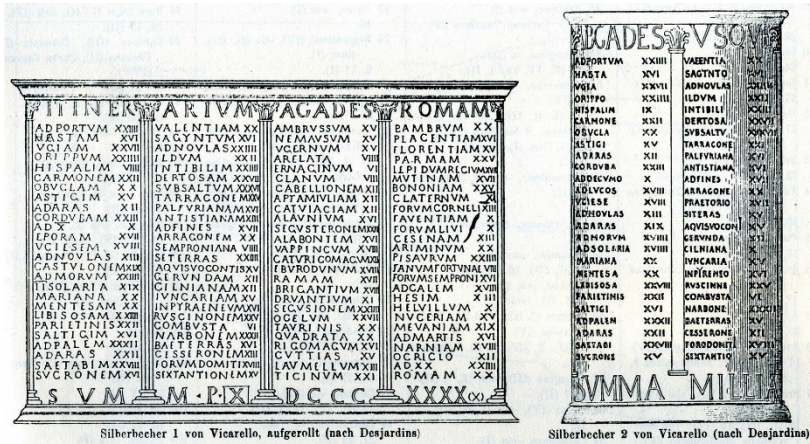 ITINERARIVM AGADES ROMAM
ADPORTVM XXIIII
HASTAM XVI
VGIAM XXVII
ORIPPVM XXIIII
HISPALIM VIIII
CARMONEM XXII
OBVCLAM XX
ASTIGIM XV
ADARAS XII
CORDVBAM XXIII
AD X X
EPORAM XVIII
VCIESEM XVIII
ADNOVLAS XIII
CASTVLONEM XIX
ADMORVM XXIIII
IISOLARIA XIX
MARIANA XX
MENTESAM XX
LIBISOSAM XXVIII
PARIETINIS XXII
SALTIGIM XVI
ADPALEM XXXII
ADARAS XXII
SAETABIM XXVIII
SVCRONEM XVI
VALENTIAM XX
SAGVNTVM XVI
ADNOVLAS XXIIII
ILDVM XXII
INTIBILIM XXIIII
DERTOSAM XXVII
SVBSALTVM XXXVII
TARRACONEM XXV
PALFVRIANAM XVI
ANTISTIANAM XIII
ADFINES XVII
ARRAGONEM XX
SEMPRONIANA VIIII
SETERRAS XXIIII
AQVISVOCONTIS XV
GERVNDAM XII
CILNIANAM XII
IVNCARIAM XV
INPYRAENEVM XVI
RVSCINONEM XXV
COMBVSTA VI
NARBONEM XXXII
BAETERRAS XVI
CESSERONEM XIII
FORVMDOMITI XVIII
SEXTANTIONEM XV
AMBRVSSVM XV
NEMAVSVM XV
VGERNVM XV
ARELATA VIIII
ERNAGINVM VI
GLANVM VIII
CABELLIONEM XII
APTAMIVLIAM XII
CATVIACIAM XII
ALAVNIVM XVI
SEGVSTERONEM XXIIII
ALABONTEM XVI
VAPPINCVM XVIII
CATVRICOMAGVM XII
EBVRODVNVM XVIII
RAMAM XVII
BRIGANTIVM XVIII
DRVANTIVM XI
SEGVSIONEM XXIIII
OCELVM XX
TAVRINIS XX
QVADRATA XX
RIGOMAGVM XVI
CVTTIAS XV
LAVMELLVM XIII
TICINVM XXI
BAMBRVM XX
PLACENTIAM XVI
FLORENTIAM XV
PARMAM XXV
LEPIDVMREGIVM XVII
MVTINAM XVII
BONONIAM XXV
CLATERNVM XI
FORVMCORNELI XIII
FAVENTIAM X
FORVMLIVI X
CESENAM XIII
ARIMINVM XX
PISAVRVM XXIIII
FANVMFORTVNAE VIII
FORVMSEMPRONI XVI
ADCALEM XVIII
HESIM XIIII
HELVILLVM X
NVCERIAM XV
MEVANIAM XIX
ADMARTIS XVI
NARNIAM XVIII
OCRICLO XII
ADXX XXIII
ROMAM XX
SVM M·P·IX DCCC XXXX(X)
Silberbecher 1 von Vicarello, aufgerollt (nach Desjardins)
GADES VSQV
ADPORTVM XXIIII
HASTA XVI
VGIA XXVII
ORIPPO XXIIII
HISPALIM IX
CARMONE XXII
OBVCLA XX
ASTIGI XV
ADARAS XII
CORDVBA XXIII
ADDECVMO X
ADLVCOS XVIII
VCIESE XVIII
ADNOVLAS XIII
ADARAS XIX
ADMORVM XVIII
ADSOLARIA XVIII
MARIANA XX
MENTESA XX
LEBISOSA XXVIII
PARIETINIS XXII
SALTIGI XVI
ADPALEM XXXII
ADARAS XXII
SAETABI XXVIII
SVCRONE XV
VALENTIA XX
SAGVNTO XVI
ADNOVLAS
ILDVM
INTIBILI
DERTOSA XXVII
SVBSALTV XXXVII
TARRACONE
PALFVRIANA
ANTISTIANA
ADFINES
ARRAGONE XX
PRAETORIO
SITERAS
AQVISVOCON
GERVNDA
CILNIANA
IVNCARIA
INPIRENEO
RVSCINNE
COMBVSTA VI
NARBONE
BAETERRAS
CESSERONE
FORODOMITI
SEXTANTIO XV
SVMMA MILLIA
Silberbecher 2 von Vicarello (nach Desjardins)